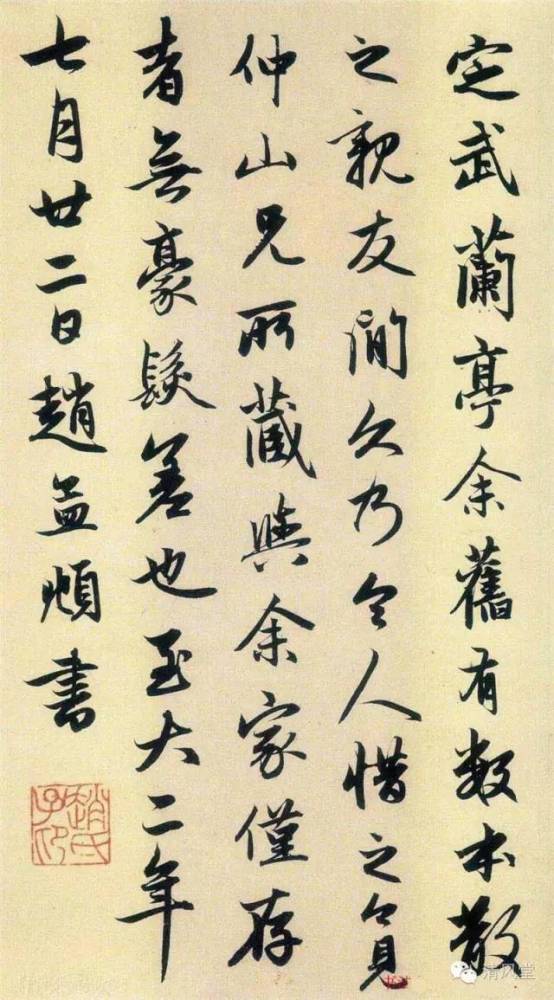 定武蘭亭余舊有數本散
之親友間久乃令人惜之今見
仲山兄所藏與余家僅存
者無豪髮差也至大二年
七月廿二日趙孟頫書
趙氏子昂
清风堂